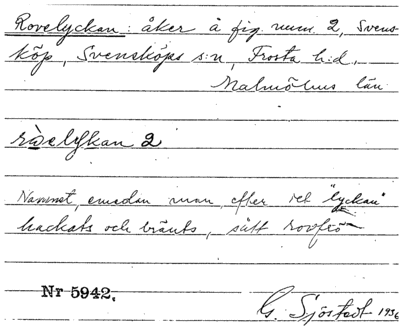 Rovelyckan: åker å fig. num. 2, Svens-
köp, Svensköps s:n, Frosta h:d,
Malmöhus län.
2
Namnet, emedan man, efter det "lyckan"
hackats och bränts, sått rovfrö
Nr 5942.
G. Sjöstedt 1936